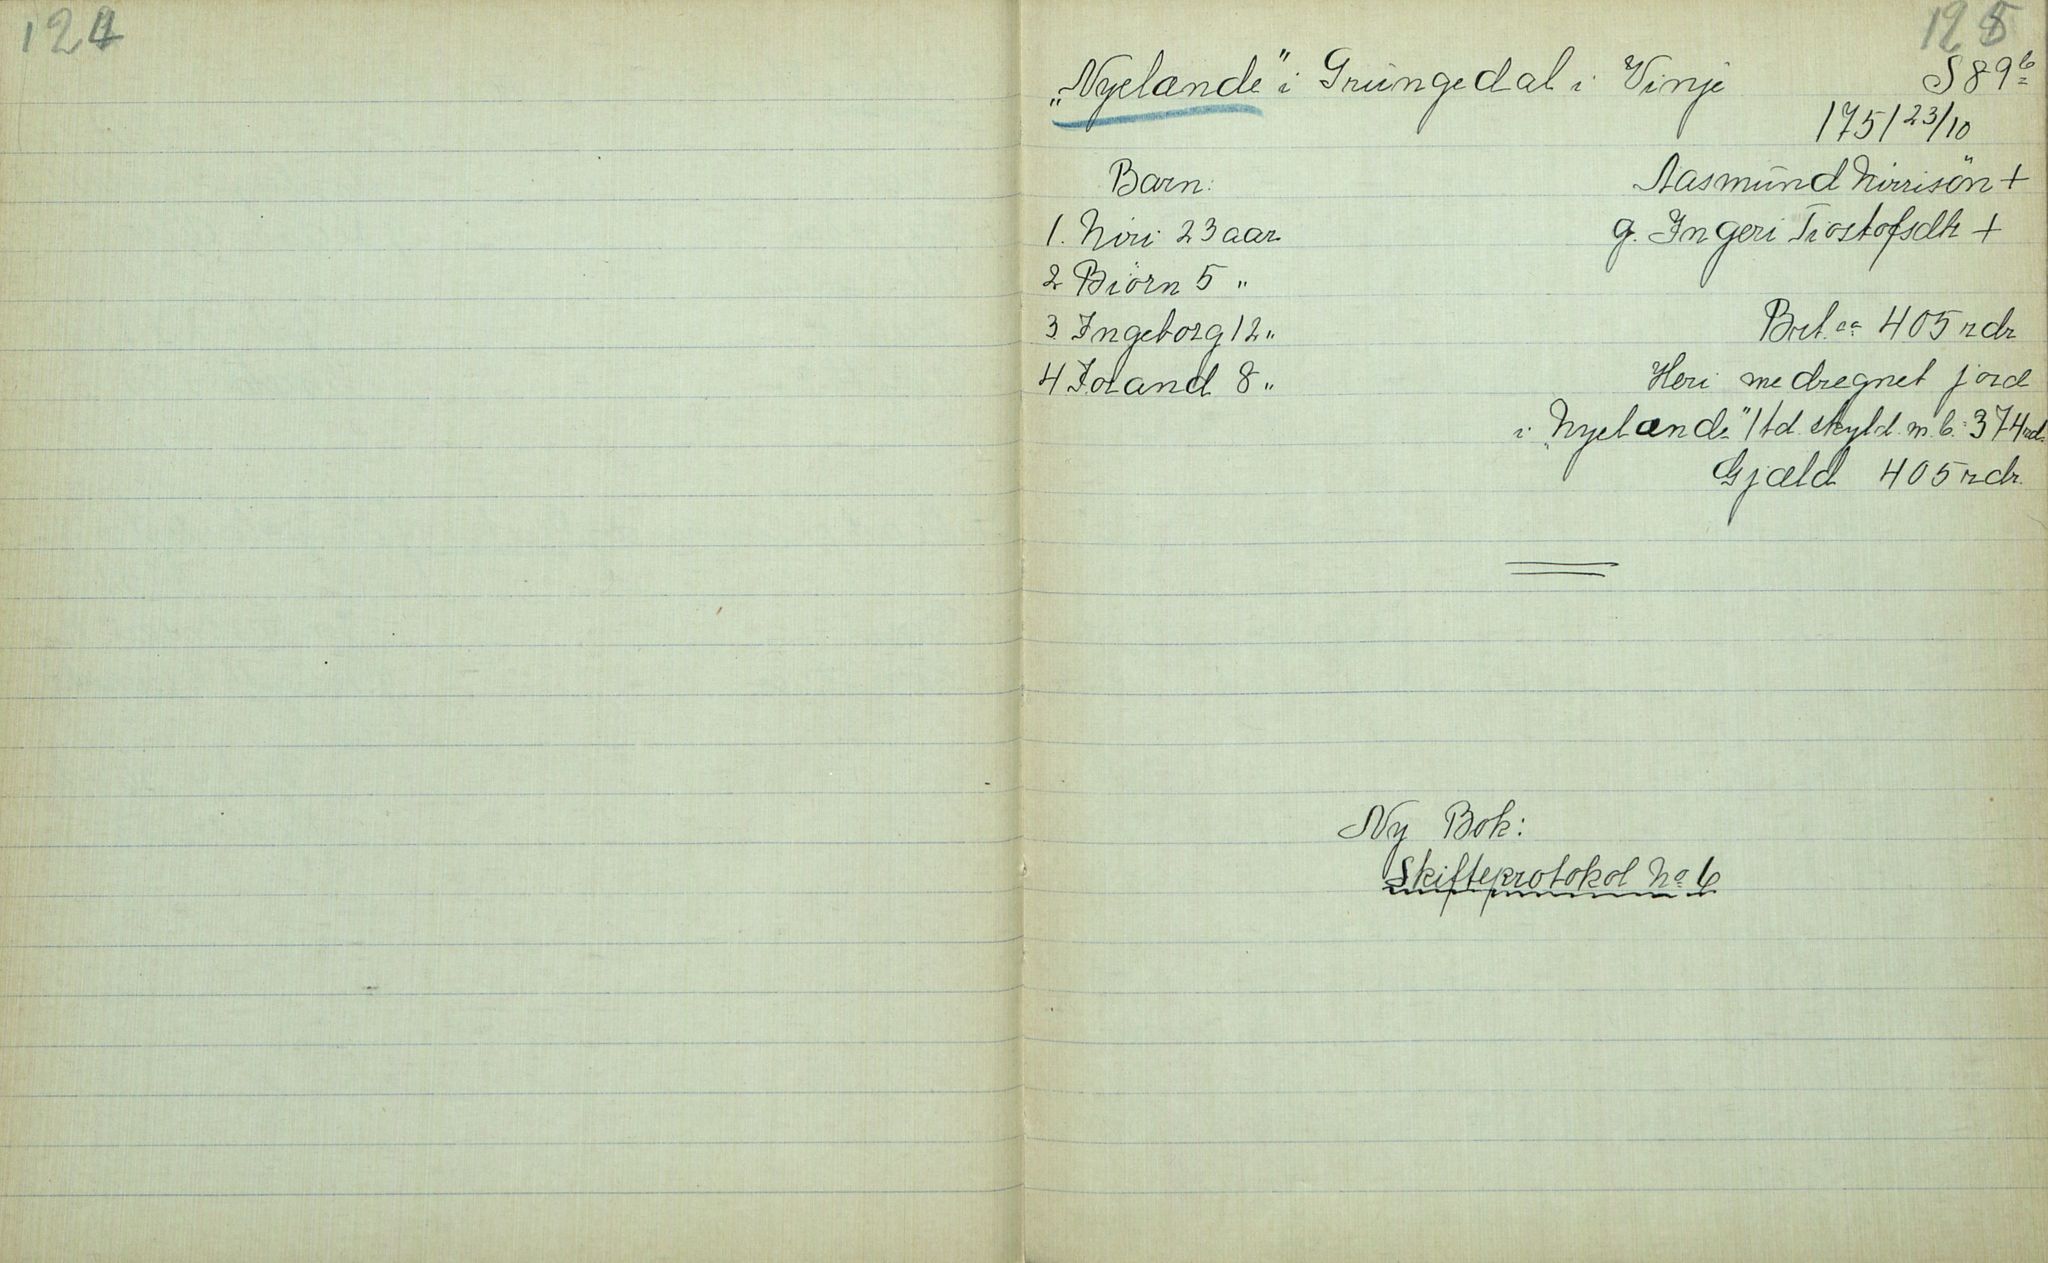 124
125
„Nyelande" i Grungedal i Vinje S 89b
1751 23/10
Barn:
Aasmund Nirisön +
1. Niri 23 aar
g. Ingeri Tiostofsdtr +
2 Biörn 5 "
3. Ingeborg 12 "
Brt. ca 405 rdr
4 Jorand 8 "
Heri medregnet jord
i „Nyelande" 1 td. skyld. m. b. 374 rd.
Gjæld 405 rdr.
Ny Bok:
Skifteprotokol No 6